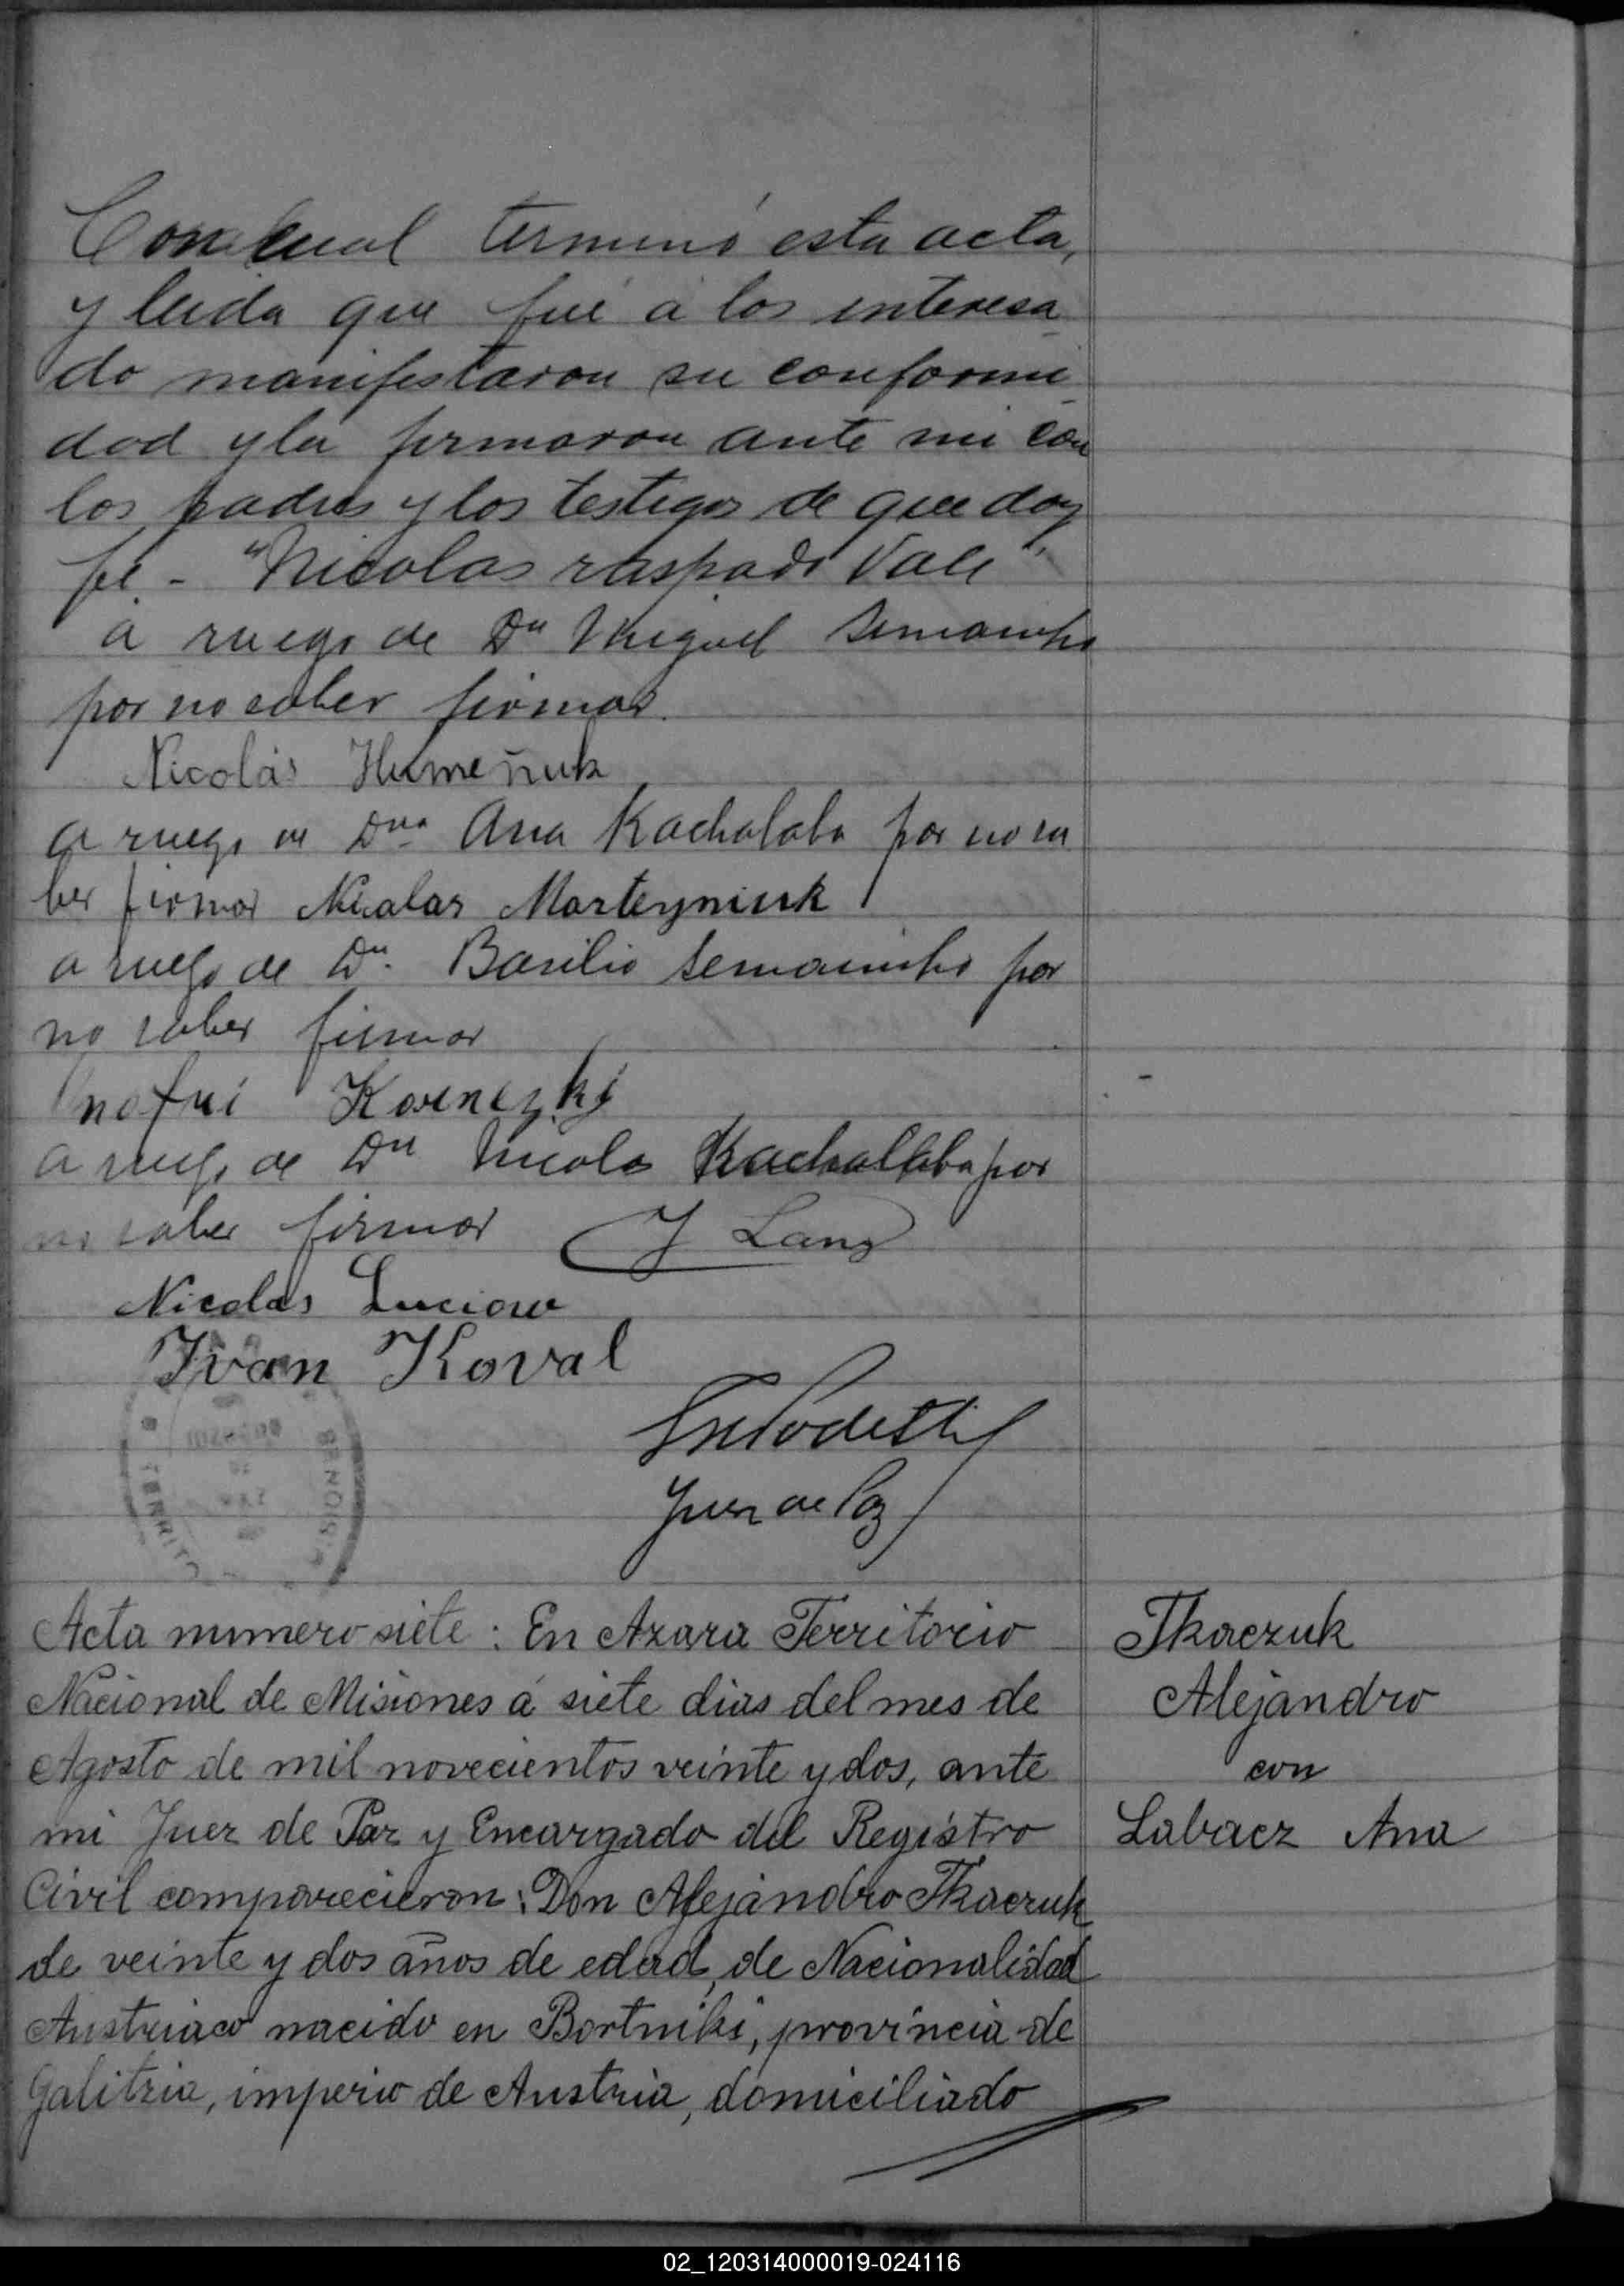 Con lo cual terminó esta acta,
y leida que fué á los interesa
do manifestaron su conformi
dad y la firmaron ante mi con
los padres y los testigos de que doy
fé. - "Nicolas raspado Vale"
a ruego de Dn Miguel Semaniho
por no saber firmar.
Nicolás Humeñuk
a ruego de Dña Ana Kachalaba por no sa
ber firmar Nicolas Marteyniuk
a ruego de Dn. Basilio Semaniho por
no saber firmar
Korneyki
a ruego de Dn Nicolas Kachallaba por
no saber firmar J Lanz
Nicolas Luciow
Ivan Koval
Juez de Paz
TERRITO
MISIONES
Acta numero siete : En Azara Territorio
Nacional de Misiones á siete dias del mes de
Agosto de mil novecientos veinte y dos, ante
mi Juez de Paz y Encargado del Registro
Civil comparecieron: Don Alejandro Tkaczuk
de veinte y dos años de edad, de Nacionalidad
Austriaco nacido en Bortniki, provincia de
Galitzia, imperio de Austria, domiciliado
Tkaczuk
Alejandro
con
Labacz Ana
02_120314000019-024116